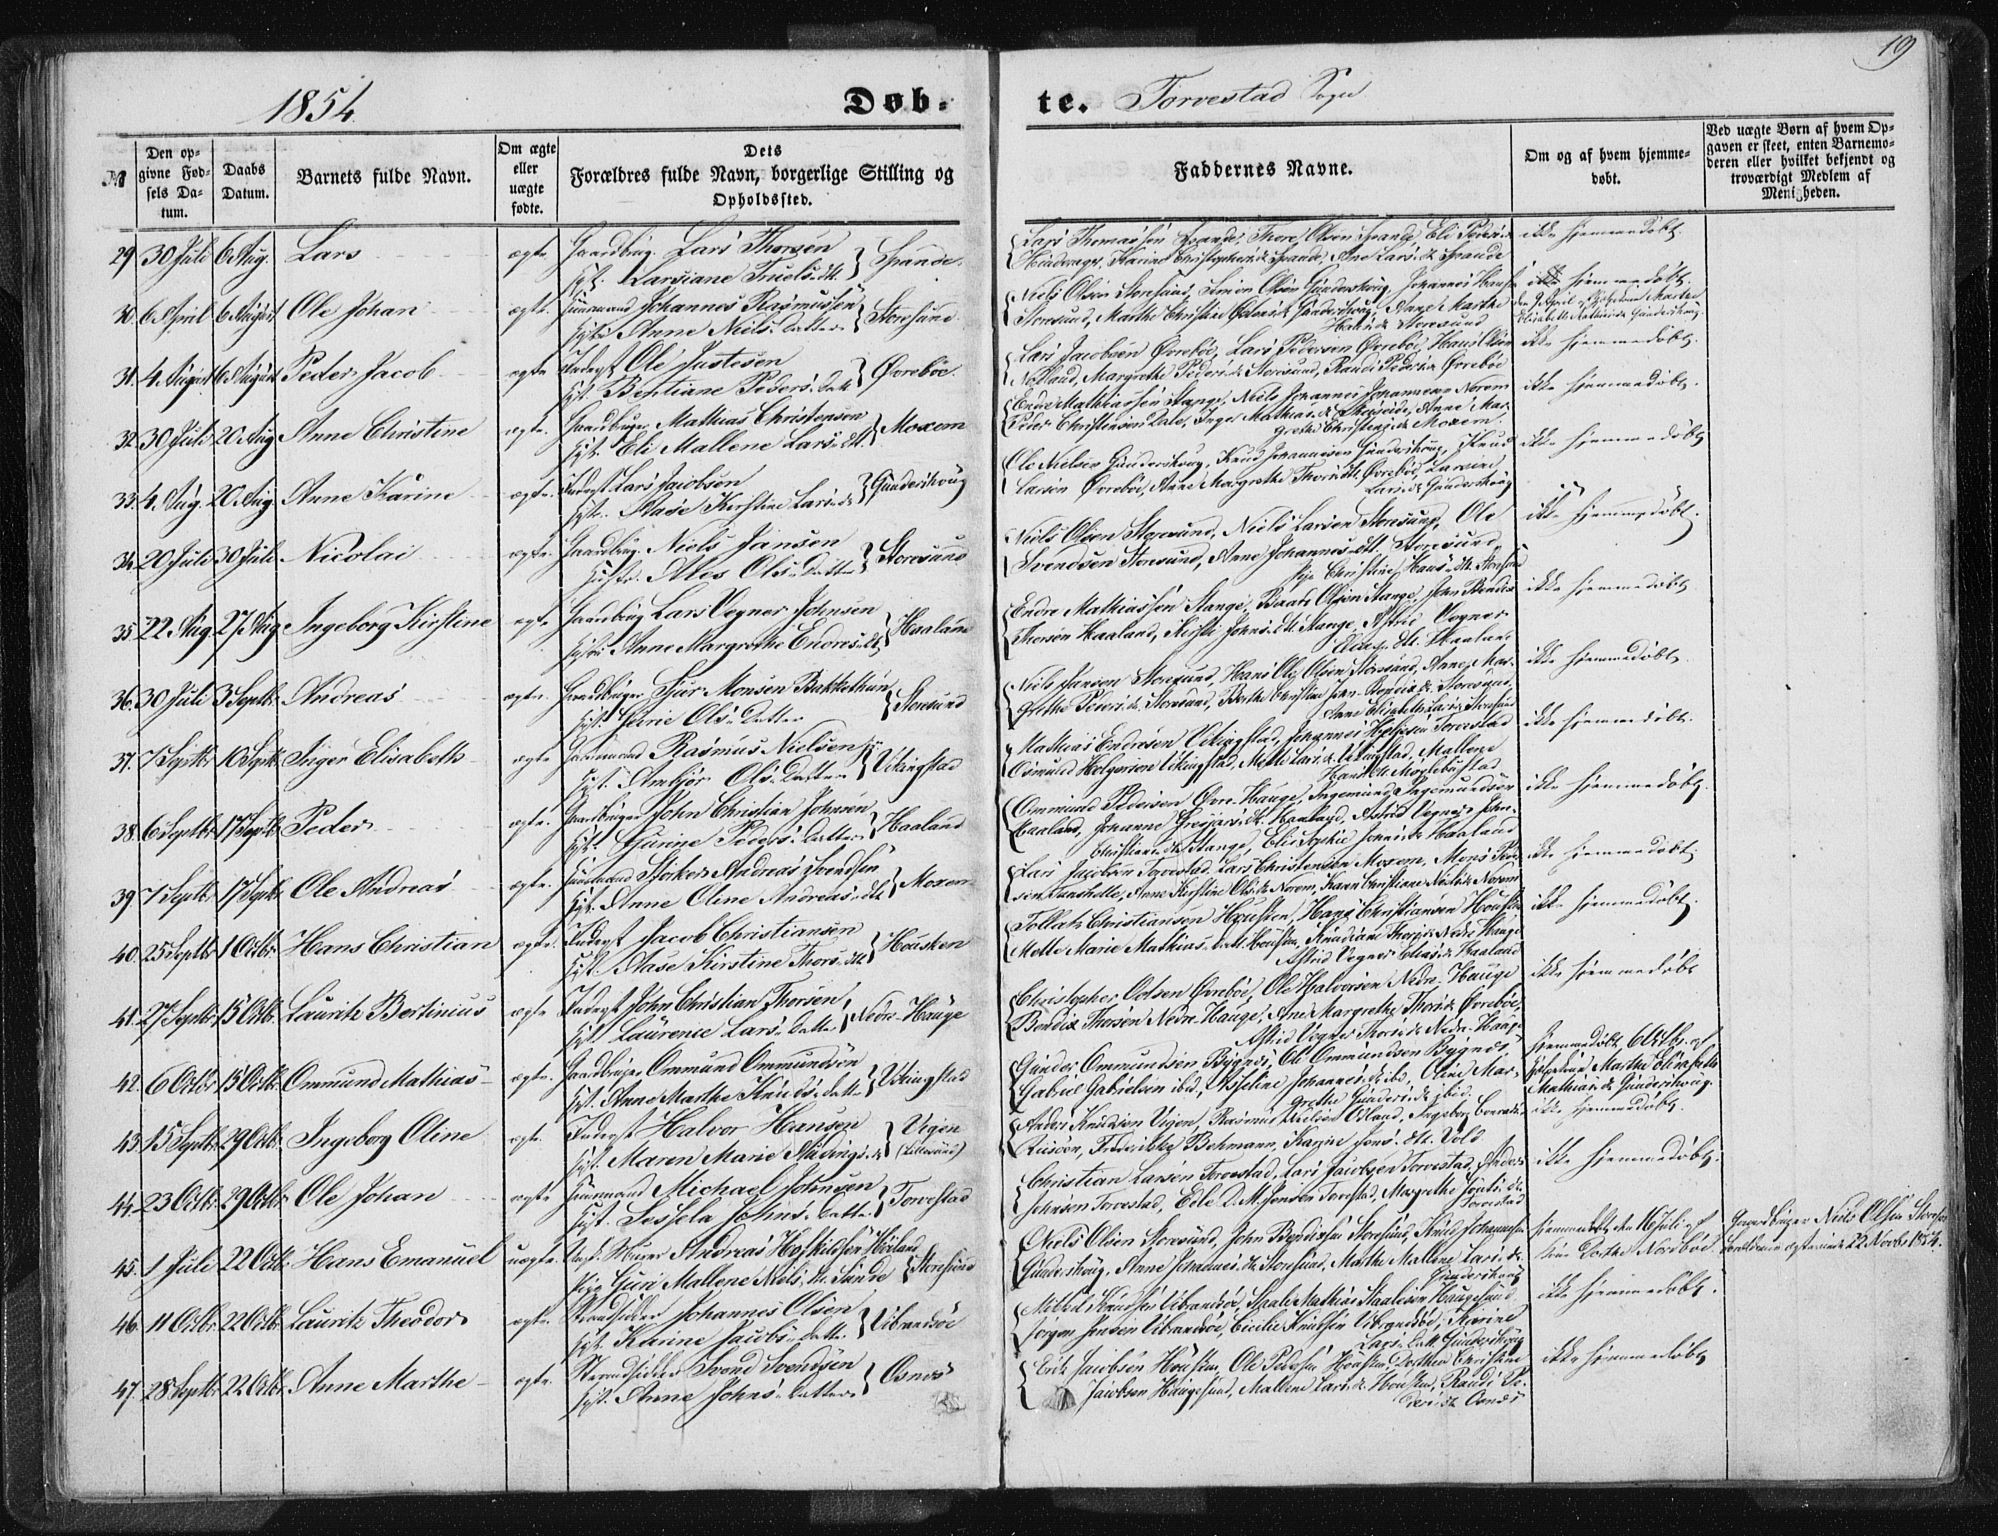 19
1854
Døb-
te. Torvestad Sogn
№
Den op-
givne Fød-
sels Da-
tum.
Daabs
Datum.
Barnets fulde Navn.
Om ægte
eller
uægte
fødte.
Dets
Forældres fulde Navn, borgerlige Stilling og
Opholdssted.
Faddernes Navne.
Om og af hvem hjemme-
døbt.
Ved uægte Børn af hvem Op-
gaven er skeet, enten Barnemo-
deren eller hvilket bekjendt og
troværdigt Medlem af
Menigheden.
29. 30 Juli 6 Aug. Lars ægte Gaardbrug. Lars Thorsen
Hst. Larsiane Truels. dtt. } Spande.
Lars Thomassen Spande, Thore Olsen Spande, Eli Peders. d.
Karine Christophers. d. Spande, Ane Lars. d. Spande
ikke hjemmedøbt.
30. 6 April 6 August Ole Johan ægte Huusmand Johannes Rasmussen
Hst. Anne Niels datter } Storesund
Niels Olsen Storesund, Simon Olsen Gunderskoug, Johannes
Storesund, Marthe Christine Gunderskoug, Anne Marthe
Hans. d. Storesund
hjemmedøbt
31. 4. August 6 August Peder Jacob ægte Inderst Ole Justesen
Hst. Bentiane Peders. datt. } Øvrebøe.
Lars Jacobsen Øvrebøe, Lars Pedersen Øvrebøe, Hans Olsen
Nolland, Margrethe Peders. d. Storesund, Randi Peders. d. Øvrebøe
ikke hjemmedøbt.
32. 30 Juli 20 Aug Anne Christine ægte. Gaardbruger Mathias Christensen
Hst. Eli Mallene Lars. dtt. } Moxem
Endre Mathiassen Stange, Niels Johannes Johannesen Norem
Peder Christensen Dale, Inger Mathias. d. Anne Mar-
grethe Christens. d. Moxem.
ikke hjemmedøbt.
33. 4. Aug. 20. Aug. Anne Karine ægte. Inderst Lars Jacobsen
Hst. Aase Kirstine Lars. d. } Gunderskoug
Ole Nielsen Gunderskoug, Knud Johannesen Gunderskoug, Knud
Larsen Øvrebøe, Anne Margrethe Thors. dtt. Øvrebøe, Larsine
Lars. d. Gunderskoug
ikke hjemmedøbt
34. 20 Juli 30 Juli Nicolai ægte. Gaardbrug. Niels Jansen
Hustr. Ales Ols. datter } Storesund
Niels Olsen Storesund, Niels Larsen Storesund, Ole
Svendsen Storesund, Anne Johannes. dtt. Storesund,
Pige Christine Hans. dtt. Storesund
ikke hjemmedøbt.
35. 22. Aug. 27. Aug. Ingeborg Kirstine ægte Gaardbrug Lars Vogner Johnsen
Hst. Anne Margrethe Endres. dt } Haaland
Endre Mathiassen Stange, Baar Olsen Stange, John Bendix
Thorsen Haaland, Kirsti Johns. dtt. Stange, Astri Vogner
Elias. dtt. Haaland
ikke hjemmedøbt.
36. 30 Juli 3 Septbr. Andreas ægte. Gaardbruger Sjur Monsen Bakkethun
Hst. Guri Ols. datter } Storesund
Niels Jansen Storesund, Hans Olai Olsen Storesund, Anne Mar-
grethe Peders. d. Storesund, Berthe Christine John Bendix. d. Storesund,
Anne Elisabeth Lars. d. Storesund
ikke hjemmedøbt.
37. 7 Septbr 10 Septb. Inger Elisabeth ægte Huusmand Rasmus Nielsen
Hst. Ambjør Ols. datter } Vikingstad
Mathias Endresen Vikingstad, Johannes Torvestad
Osmund Holgersen Vikingstad, Mette Lars. d. Vikingstad, Mallene
Hans. dt.
ikke hjemmedøbt.
38. 6 Septbr 17 Septb. Peder ægte. Gaardbruger John Christian Johnsen
Hst. Gurine Peders. datter } Haaland
Ommund Pedersen Øvre-Hauge, Ingemund Ingemundsen
Haaland, Johanne d. Haaland, Astrid Vogner John-
Christians. d. Stange, Elie Sophie Johns. d. Haaland
ikke hjemmedøbt.
39. 7 Septbr 17 Septb. Ole Andreas ægte. Huusmand Styrker Andreas Svendsen
Hst. Anne Oline Andreas. dt } Moxem
Lars Jacobsen Torvestad, Lars Christensen Moxem, Mons Peder-
sen Anne Kirstine Ols. d. Norem, Karen Christiane Niels. d. Norem
ikke hjemmedøbt.
40. 25 Septbr 1 Octbr Hans Christian ægte. Inderst Jacob Christiansen
Hst. Aase Kirstine Thors. dtt. } Housken
Tollak Christiansen Housken, Hans Christiansen Housken
Mette Marie Mathias. datt. Housken, Knudiane Thors. d. Nedre Hauge
Astrid Vogner Elias. d. Haaland
ikke hjemmedøbt.
41. 27 Septbr 15 Octb. Lauritz Bertinius ægte Inderst John Christian Thorsen
Hst. Laurence Lars. datter } Nedre-Hauge
Christopher Olsen Øvrebøe, Ole Halvorsen Nedre-Hauge
Bendix Thorsen Nedre-Hauge, Ane Margrethe Thors. d. Øvrebøe,
Astrid Vogner Thors. d. Nedre-Hauge
ikke hjemmedøbt
42. 6 Octbr 15 Octb. Ommund Mathias ægte. Gaardbruger Ommund Ommundsen
Hst. Anne Marthe Knuds. datt } Vikingstad
Gunder Ommundsen Bygnes, Ole Ommundsen Bygnes
Gabriel Gabrielsen ibid, Johannes. d. ibd, Oline Mar-
grethe Gunders. d. ibid.
hjemmedøbt 6 Octbr. af
Marthe Elisabeth
Mathias. d. Gunderskoug.
43. 15 Septbr 29 Octb. Ingeborg Oline ægte. Inderst Halvor Hansen
Hst. Maren Marie } Vigen
Anders Knudsen Vigen, Rasmus Nielsen Ingeborg
Frederikke Behmann, Karine Jons. dtt. Vold
ikke hjemmedøbt.
44. 23 Octbr 29 Octbr. Ole Johan ægte Huusmand Michael Johnsen
Hust. Sessela Johns. datter } Torvestad
Christian Larsen Torvestad, Lars Jacobsen Torvestad, Anders
Johnsen Torvestad, Edle D. M. Jensen Torvestad, Margrethe d.
Torvestad
ikke hjemmedøbt.
45. 1 Juli 22 Octb. Hans Emanuel uægte. Andreas Hoskildsen Høiland
Pige Guri Mallene Niels. dt. Sunde } Storesund
Niels Olsen Storesund, John Bendixsen Storesund, Knud Johannesen
Gunderskoug, Anne Johannes. d. Storesund, Marthe Mallene Lars. d.
Gunderskoug
hjemmedøbt den 16 Juli af
Dorthe Nordbøe
Gaardbruger Niels Olsen Storesund
22 Novbr 1854.
46. 11 Octbr 22 Octbr Lauritz Theodor ægte. Strandsidder Johannes Olsen
Hst. Karine Jacobs. datter } Vibrandsøe
Knudsen Vibrandsøe, Staale Mathias Staalesen Haugesund
Jørgen Jensen Vibrandsøe, Cicilie Knudsen Vibrandsøe, Karine
Lars. datt. Gunderskoug
ikke hjemmedøbt.
47. 28 Septbr 22 Octbr Anne Marthe ægte. Strandsidder Svend Svendsen
Hst. Anne Johns. datter } Osnes
Erik Jacobsen Housken, Ole Pedersen Housken, Dorthea Christine
Jacobsen Haugesund, Mallene Lars. d. Housken, Randi Pe-
ders. dt. Osnes
ikke hjemmedøbt